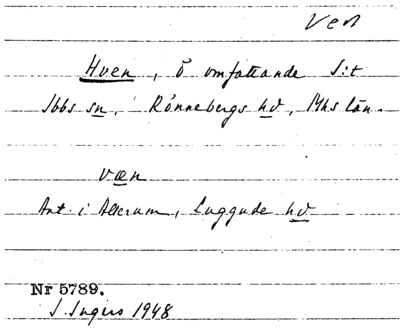 Ven
Hven, ö omfattande S:t
Ibbs sn, Rönnebergs hd, Mhs län.
væn
Ant. i Allerum, Luggude hd
Nr 5789.
I. Ingers 1948